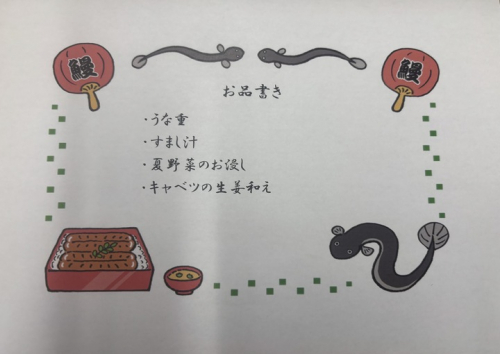 鰻
鰻
お品書き
・うな重
・すまし汁
・夏野菜のお浸し
・キャベツの生姜和え